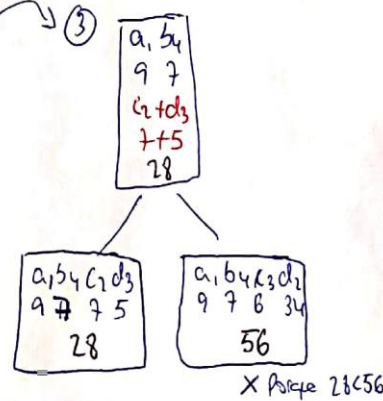 ③
a₁ b₄
9 7
c₂+d₃
7+5
28
a₁ b₄ c₂ d₃
9 7 7 5
28
a₁ b₄ c₃ d₂
9 7 6 34
56
X Porque 28<56